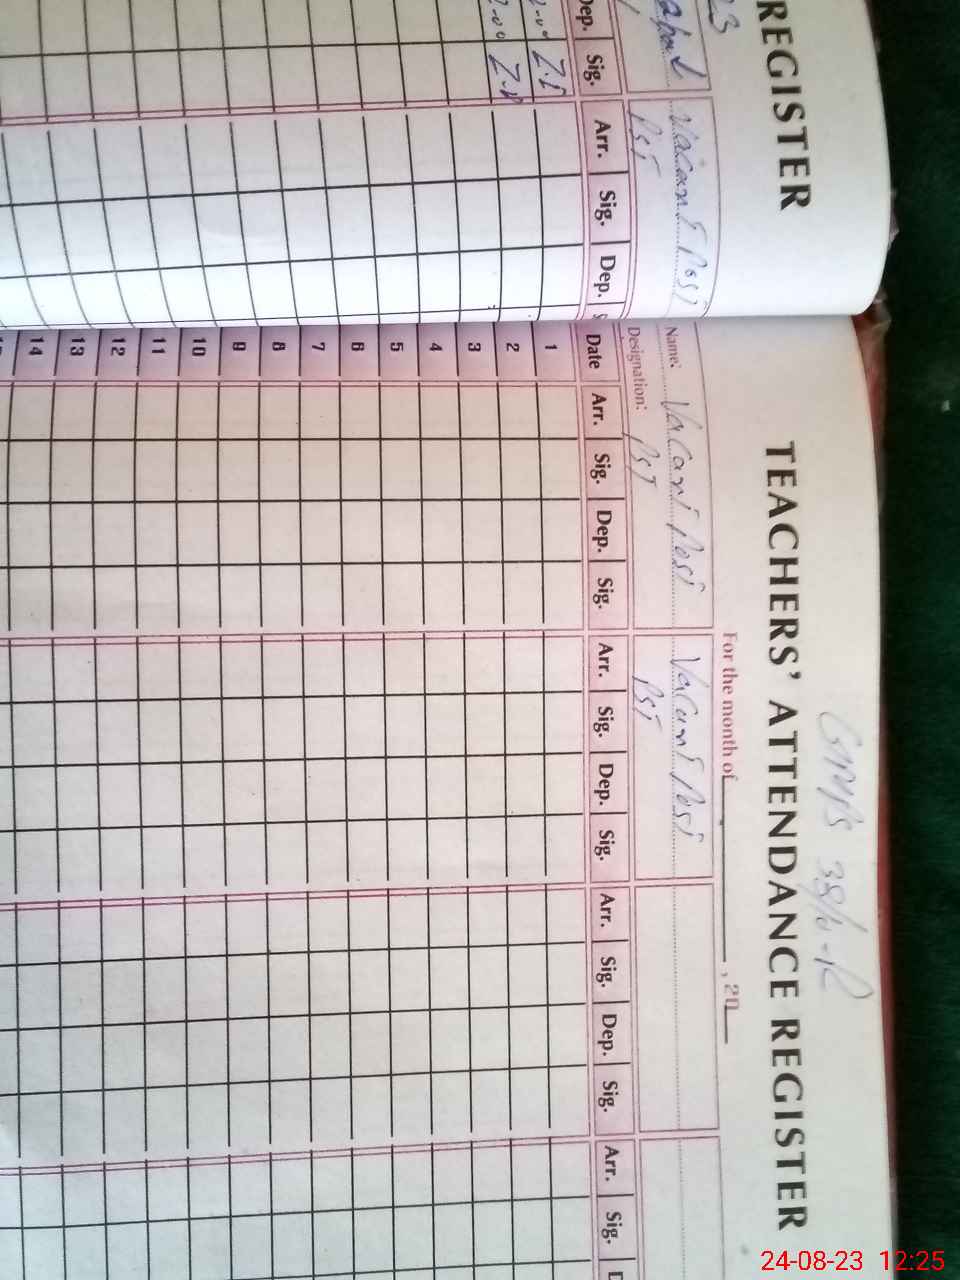 REGISTER
23
Vacant Post
PST
Dep. Sig. Arr. Sig. Dep. S
2-00 Z.A
2-00 Z.A
38/12-R
TEACHERS' ATTENDANCE REGISTER
For the month of , 20
Name: Vacant Post Vacant Post
Designation: PST PST
Date Arr. Sig. Dep. Sig. Arr. Sig. Dep. Sig. Arr. Sig. Dep. Sig. Arr. Sig. D
1
2
3
4
5
6
7
8
9
10
11
12
13
14
24-08-23 12:25